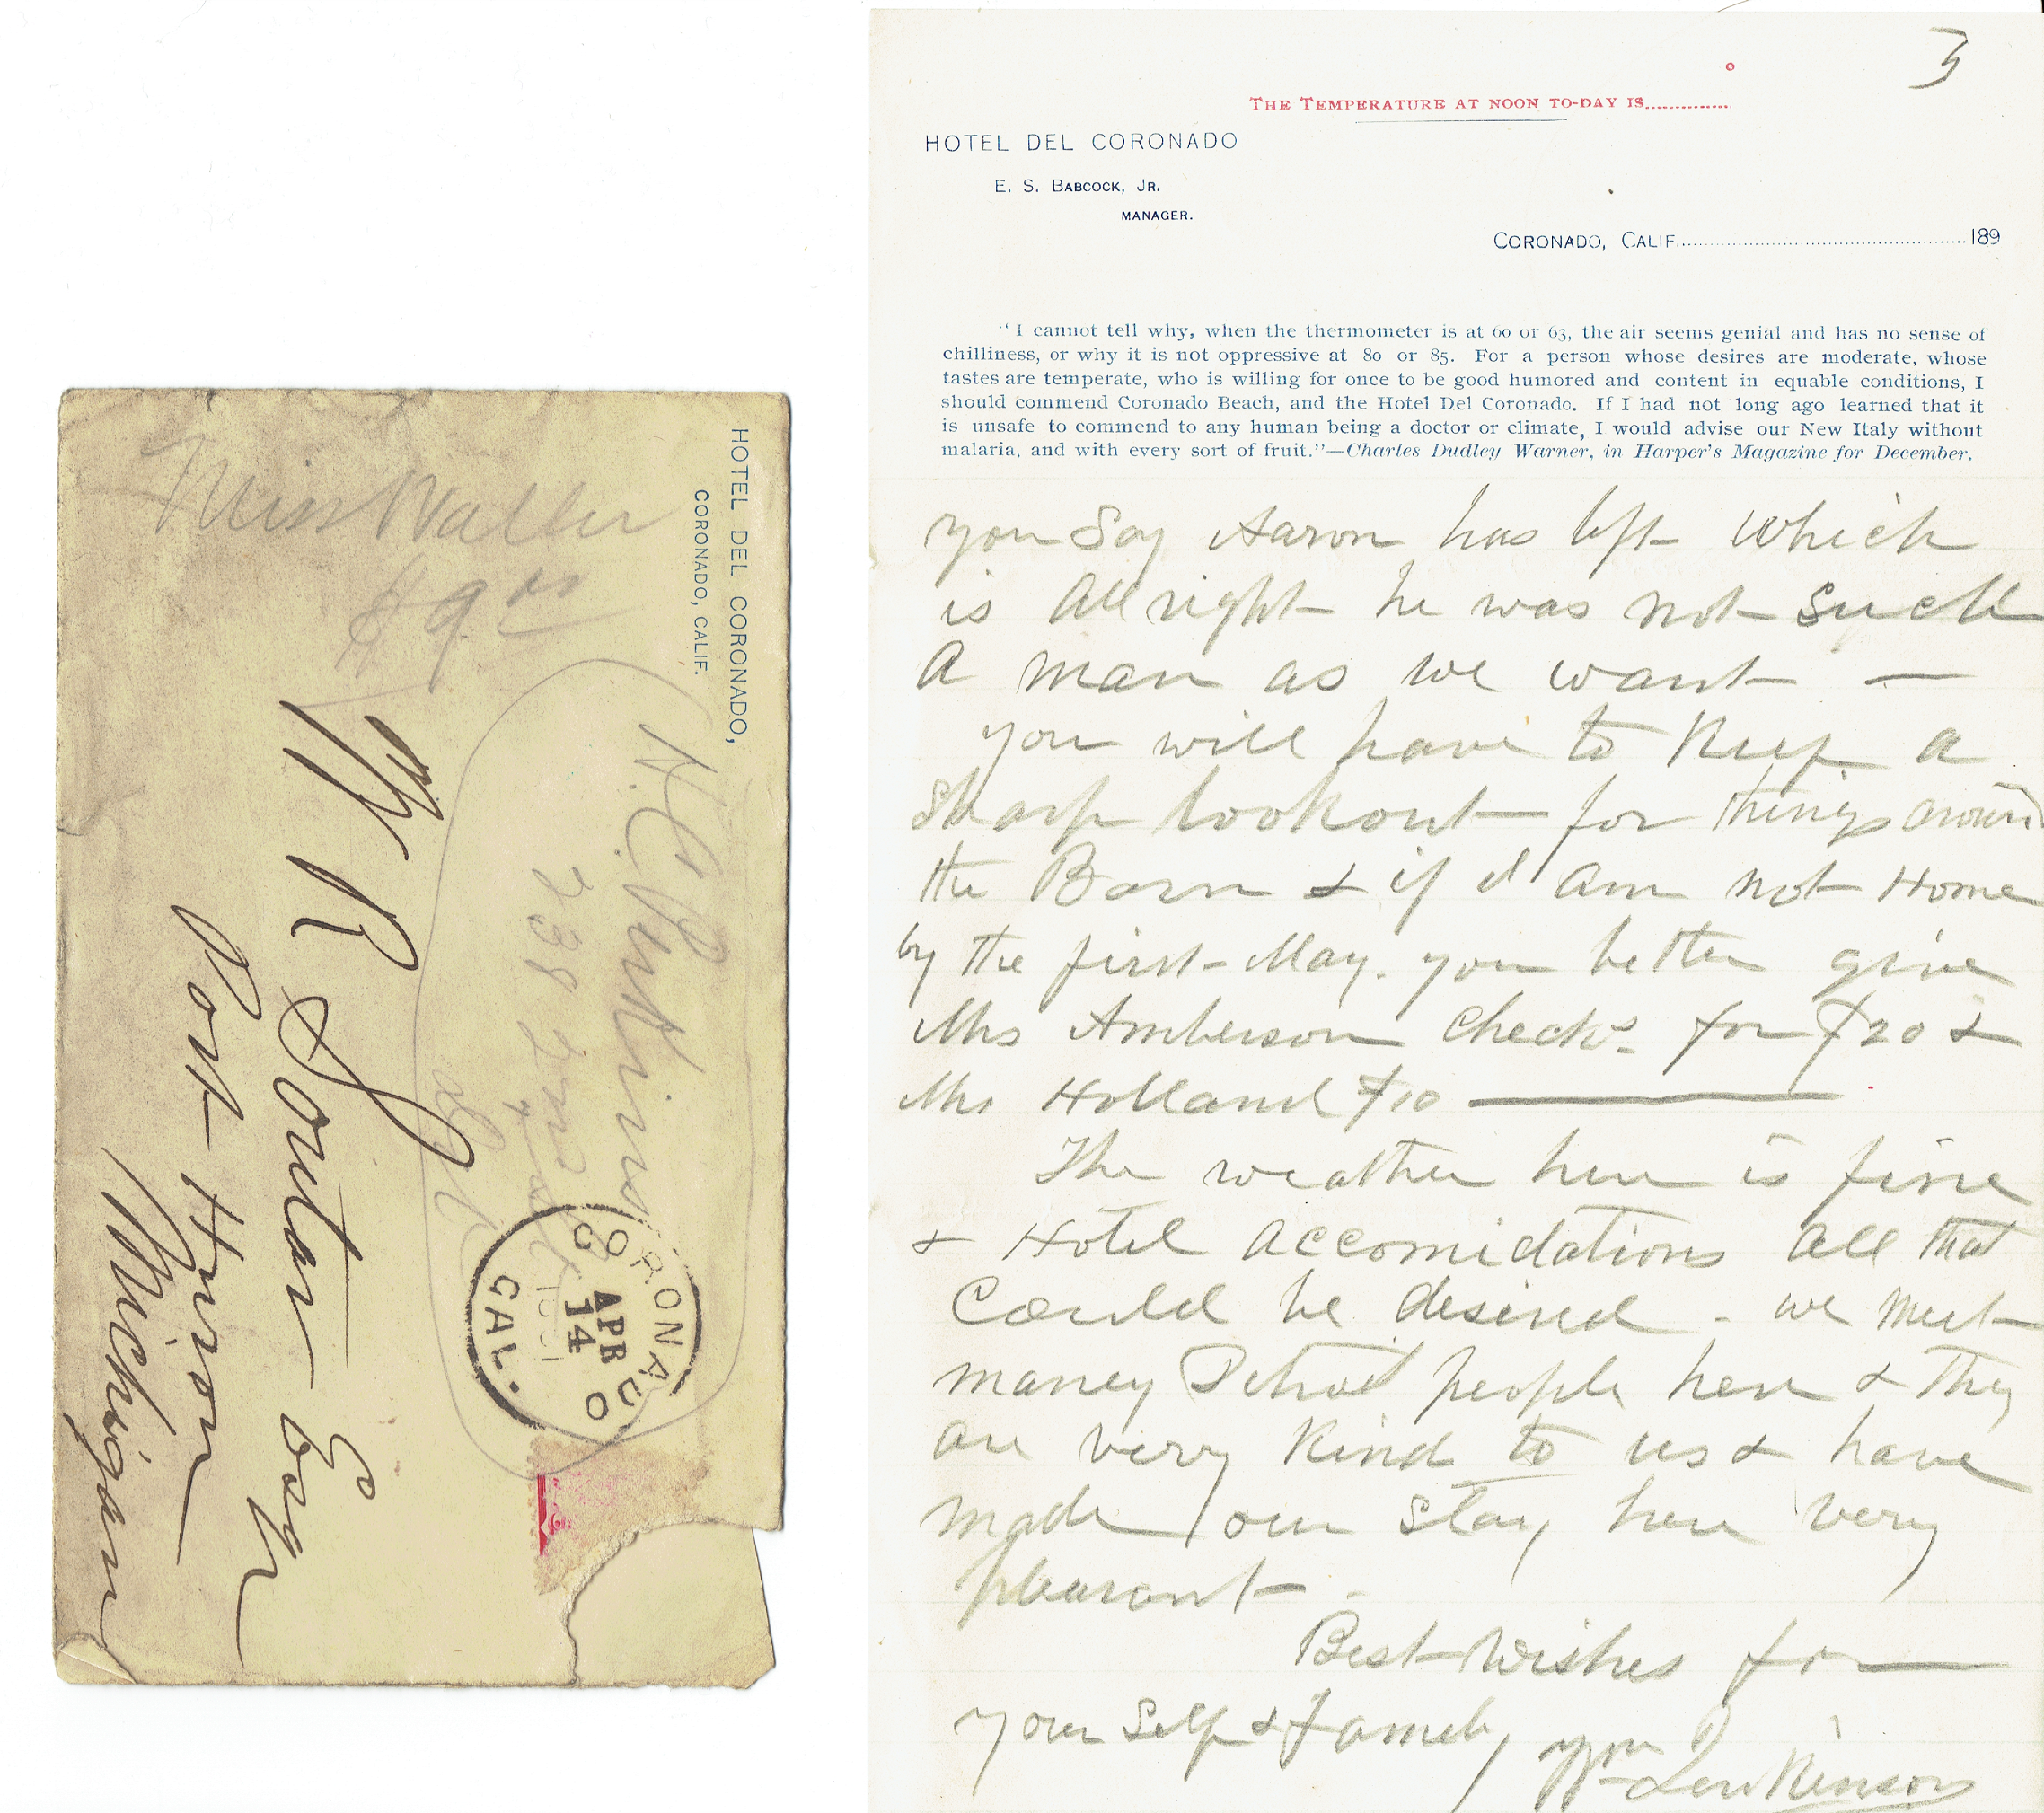 HOTEL DEL CORONADO,
CORONADO, CALIF.
Miss Waller
$9.00
H. C. Perkins
738 2nd st
CORONADO
APR
14
CAL.
W R Soutar Esqr
Port Huron
Michigan
3
THE TEMPERATURE AT NOON TO-DAY IS..............
HOTEL DEL CORONADO
E. S. BABCOCK, JR.
MANAGER.
CORONADO, CALIF. ............................................ 189
"I cannot tell why, when the thermometer is at 60 or 63, the air seems genial and has no sense of
chilliness, or why it is not oppressive at 80 or 85. For a person whose desires are moderate, whose
tastes are temperate, who is willing for once to be good humored and content in equable conditions, I
should commend Coronado Beach, and the Hotel Del Coronado. If I had not long ago learned that it
is unsafe to commend to any human being a doctor or climate, I would advise our New Italy without
malaria, and with every sort of fruit."—Charles Dudley Warner, in Harper's Magazine for December.
you Say Aaron has left which
is All right he was not such
A man as we want —
you will have to Keep a
sharp lookout for things around
the Barn & if I am not Home
by the first May. you better give
Mrs Amberson checks for $20 &
Mrs Holland $10 ———
The weather here is fine
& Hotel Accomidations All that
Could be desired - we meet
maney Detroit people here & they
are very Kind to us & have
made our stay here very
pleasant -
Best Wishes for
your Self & Famely
Wm Jenkinson